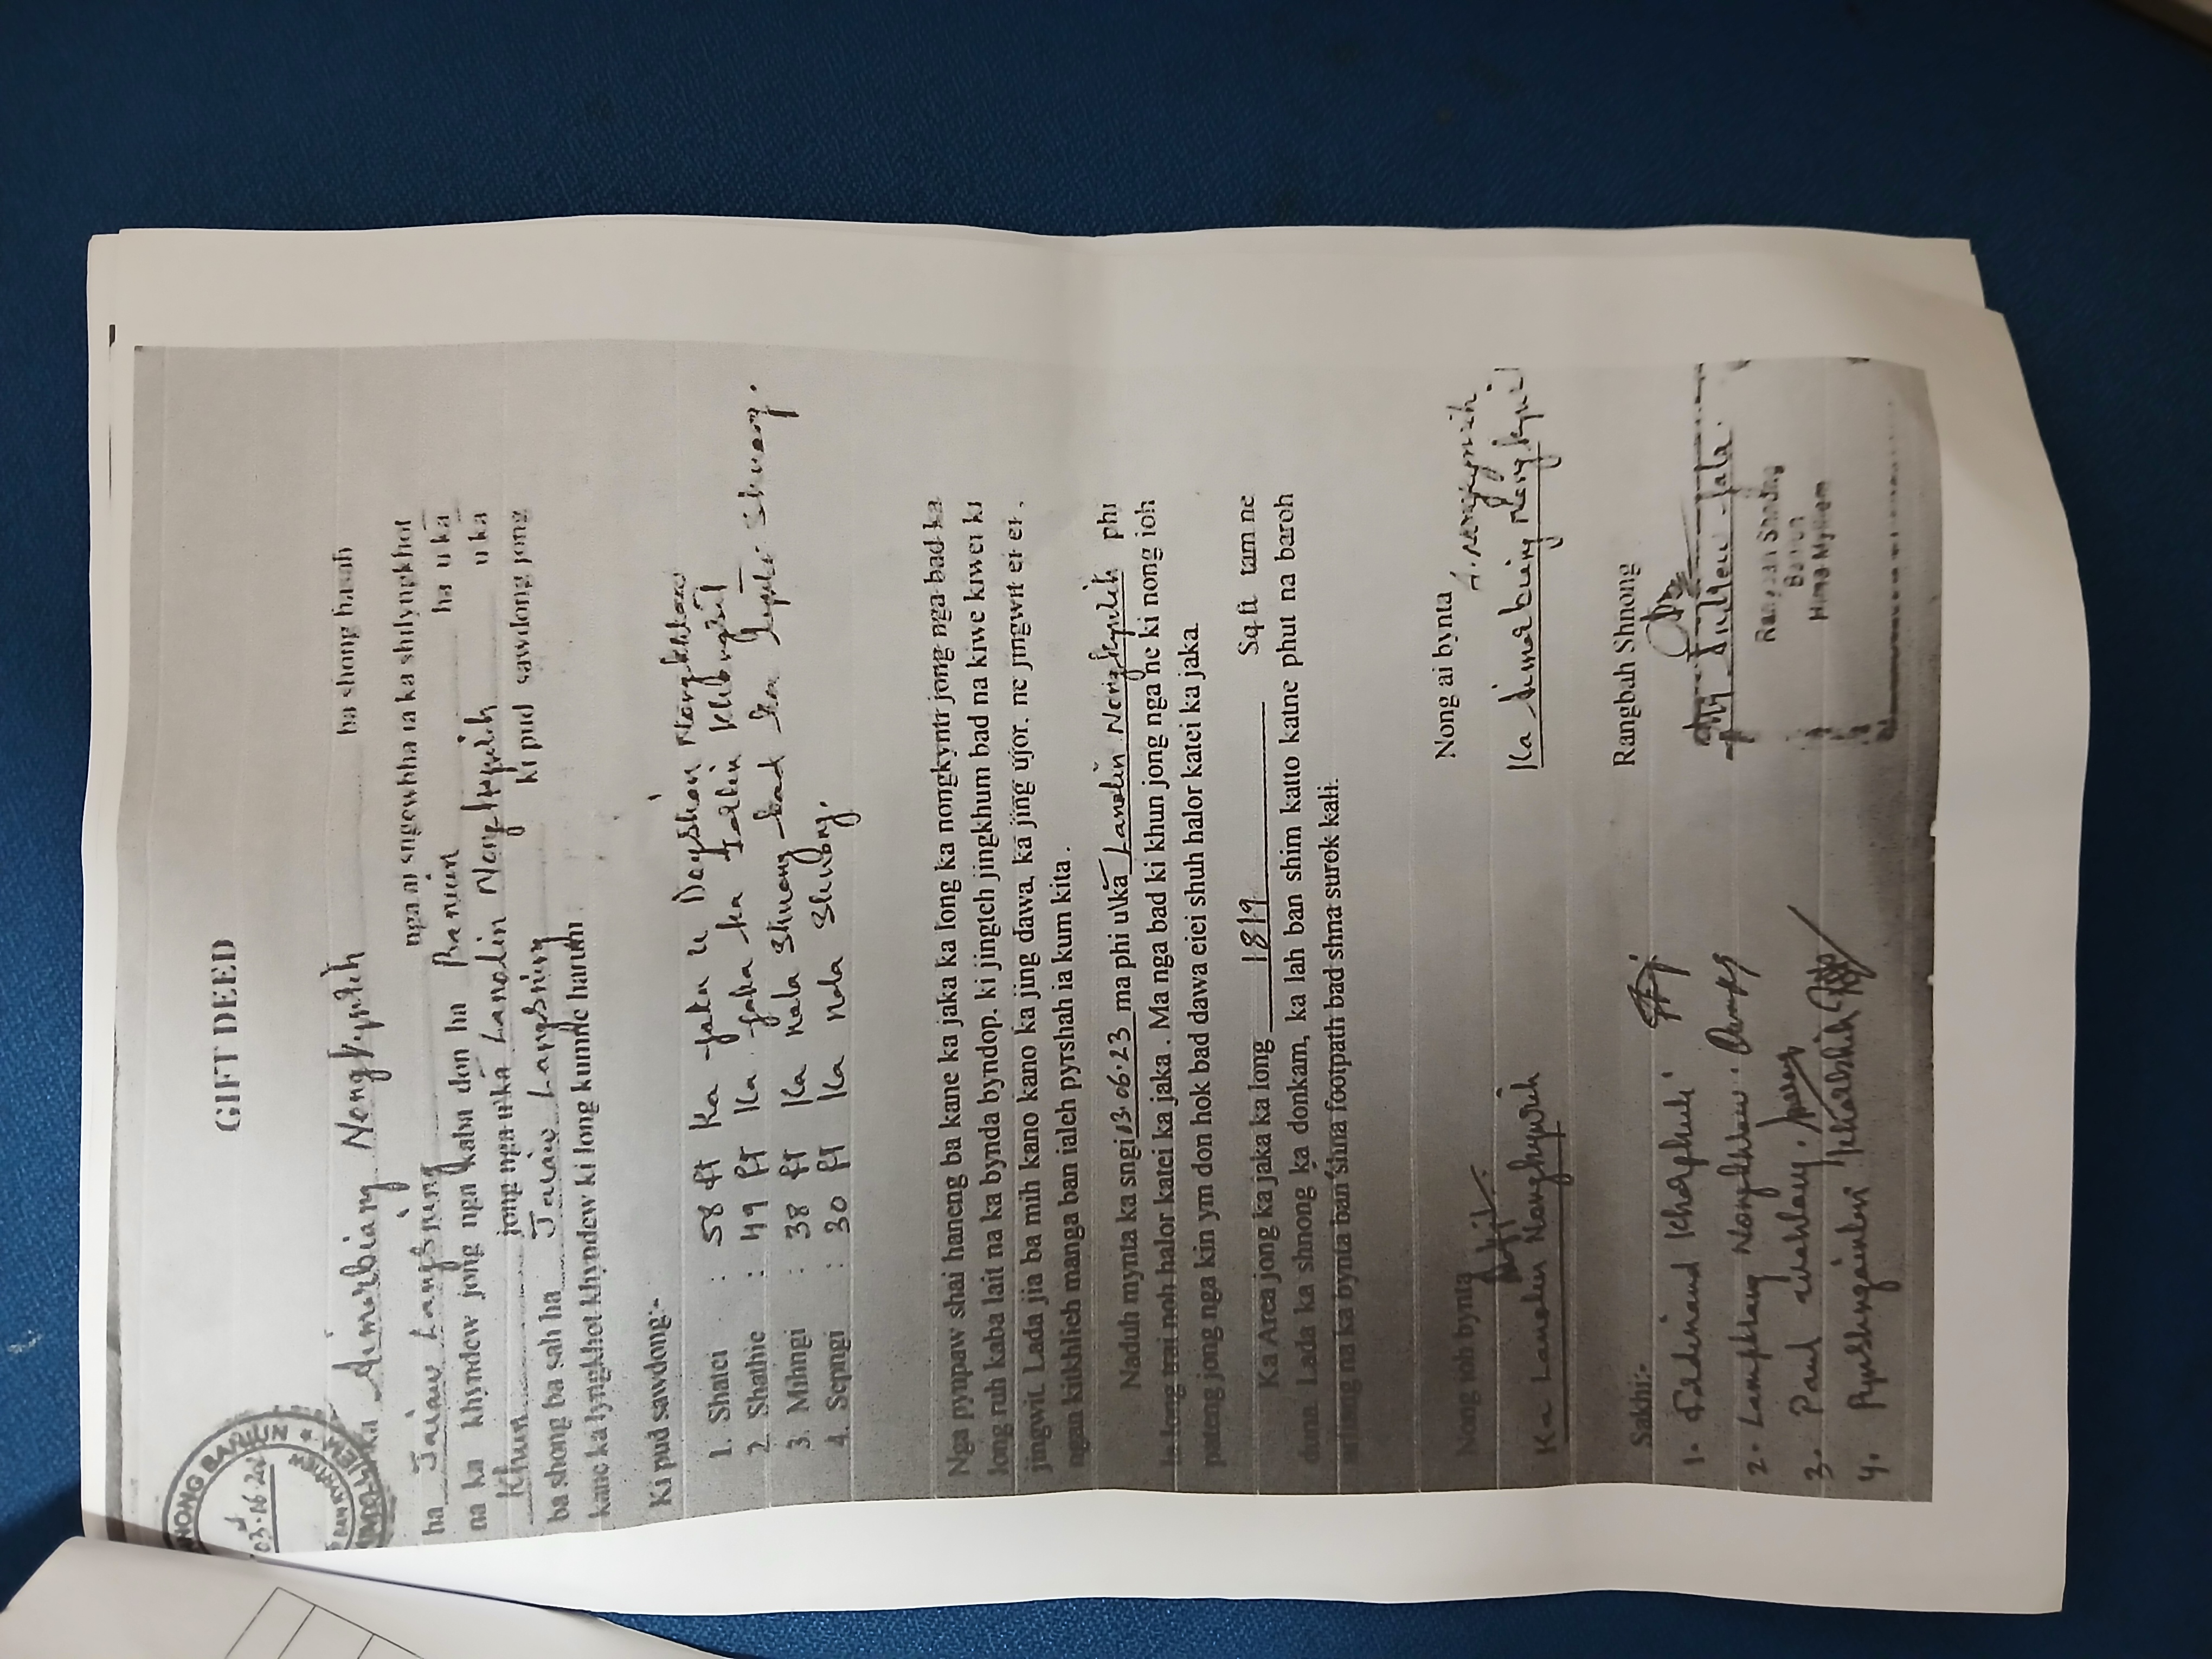 GIFT DEED
NONG BANIUN
03.06.20
MYLLIEM
ka Aimerbiang Nongkynrih ba shong basah
ha Jaiaw Langsning nga ai sngewbha ia ka shilyngkhot
na ka khyndew jong nga kaba don ha Baniun ha u ka
Khun jong nga u ka Lanolin Nongkynrih u ka
ba shong ba sah ha Jaiaw Langsning ki pud sawdong jong
kane ka lyngkhot khyndew ki long kumne harum
Ki pud sawdong:-
1. Shatei : 58 ft Ka jaka u Dayshon Nongkhlaw
2. Shathie : 49 ft Ka jaka ka Ioclin
3. Mihngi : 38 ft Ka nala Shnong bad ka Shnong.
4. Sepngi : 30 ft Ka nala Shnong.
Nga pynpaw shai haneng ba kane ka jaka ka long ka nongkynti jong nga bad ka
long ruh kaba lait na ka bynda byndop, ki jingteh jingkhum bad na kiwe kiwei ki
jingwit. Lada jia ba mih kano kano ka jing dawa, ka jing ujor, ne jingwit ei ei ,
ngan kitkhlieh manga ban ialeh pyrshah ia kum kita .
Naduh mynta ka sngi 13.06.23 ma phi u\ka Lanolin Nongkynrih phi
la long trai noh halor katei ka jaka . Ma nga bad ki khun jong nga ne ki nong ioh
pateng jong nga kin ym don hok bad dawa eiei shuh halor katei ka jaka
Ka Area jong ka jaka ka long 1819 Sq ft tam ne
duna. Lada ka shnong ka donkam, ka lah ban shim katto katne phut na baroh
na ka bynta ban shna footpath bad shna surok kali.
Nong ioh bynta Nong ai bynta
A. Nongkynrih
Ka Lanolin Nongkynrih Ka Aimerbiang Nongkynrih
Sakhi:- Rangbah Shnong
1. Ferdinand Kharphuli
2. Lamphrang Nongkhlaw.
3. Paul
4. Pynshngainlin Wahlang
Rangbah Shnong
Baniun
Hima Mylliem